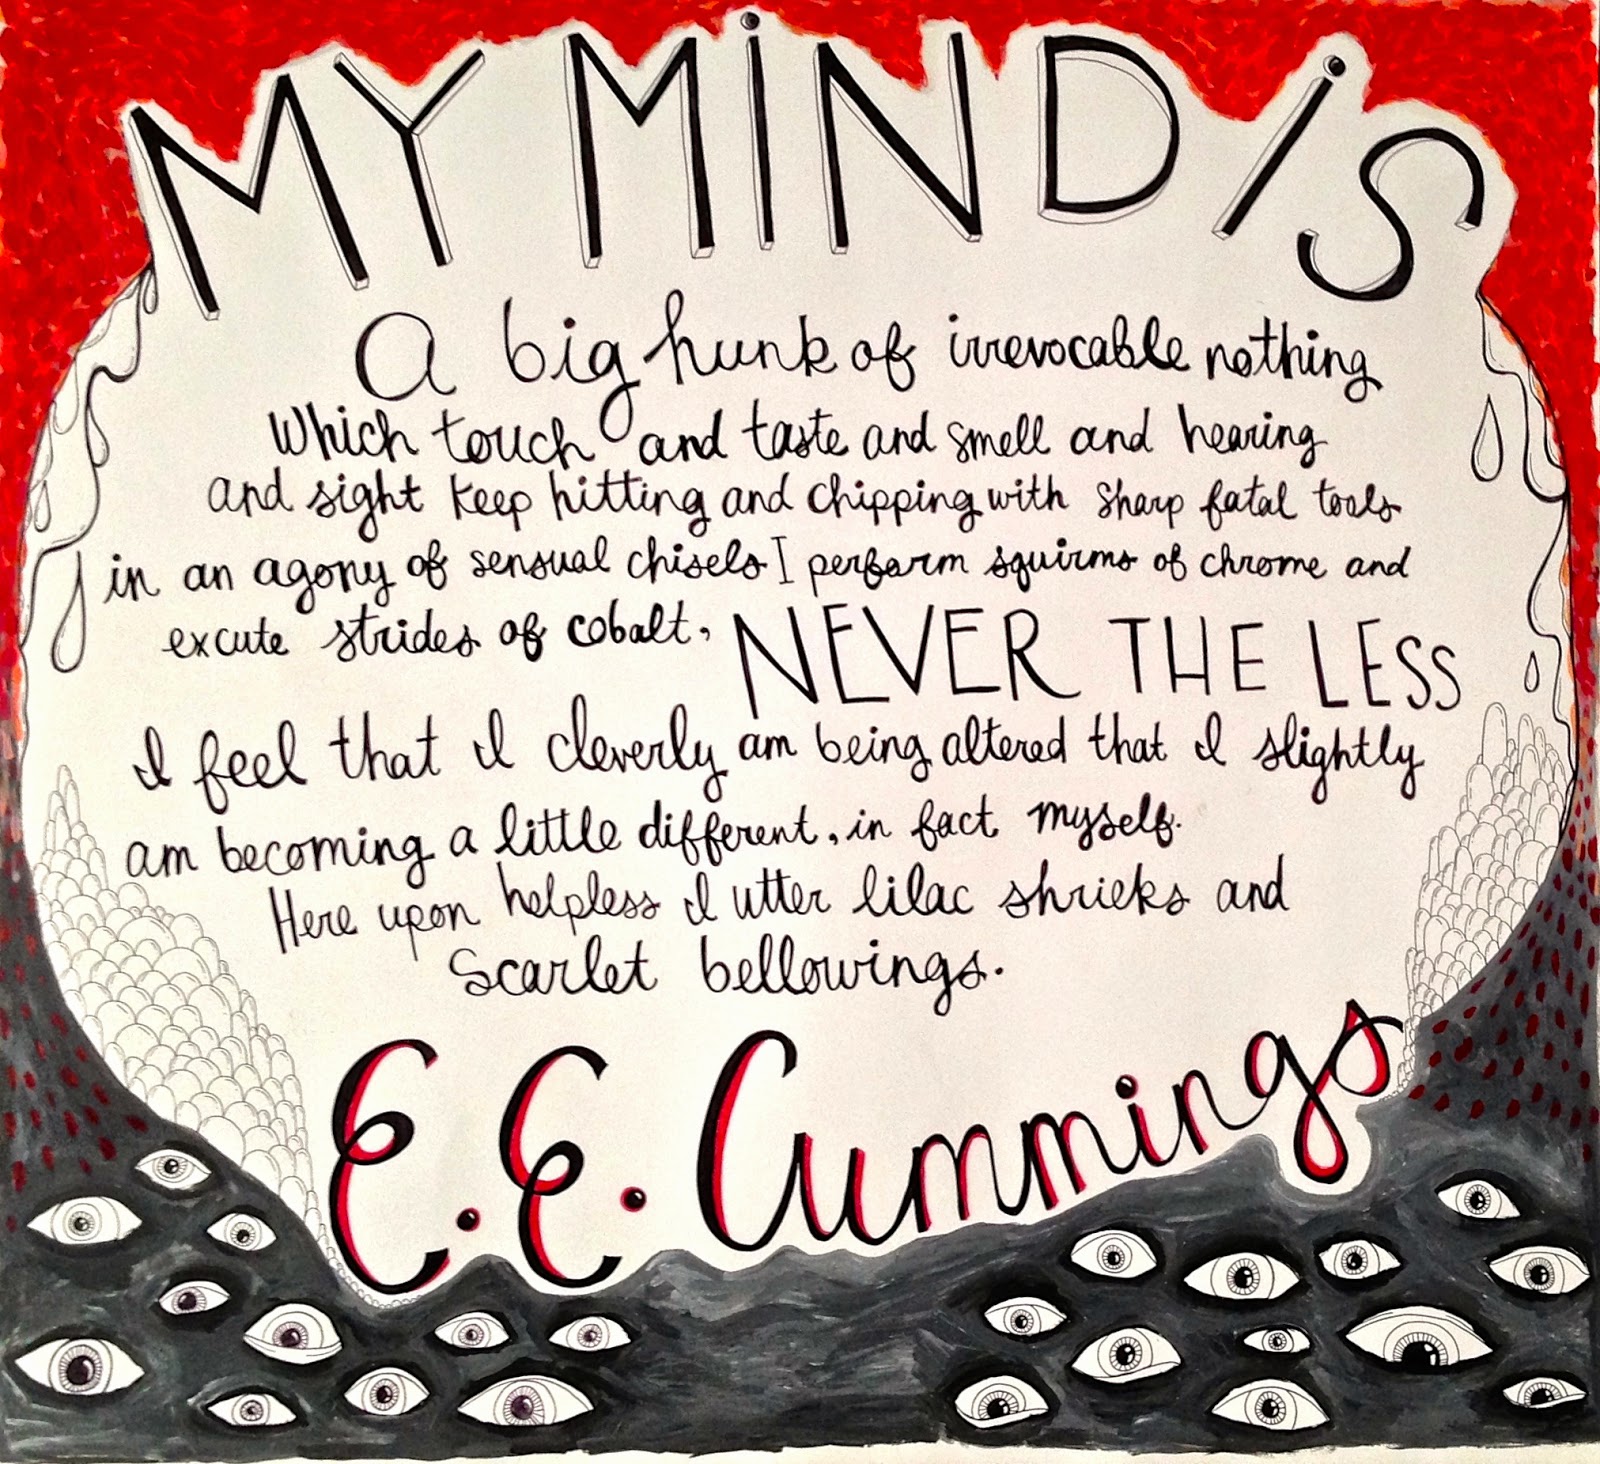 MY MiND iS
A big hunk of irrevocable nothing
Which touch and taste and smell and hearing
and sight keep hitting and chipping with sharp fatal tools
in an agony of sensual chisels I perform squirms of chrome and
excute strides of cobalt, NEVER THE LESS
I feel that I cleverly am being altered that I slightly
am becoming a little different, in fact myself.
Here upon helpless I utter lilac shrieks and
Scarlet bellowings.
E.E. Cummings